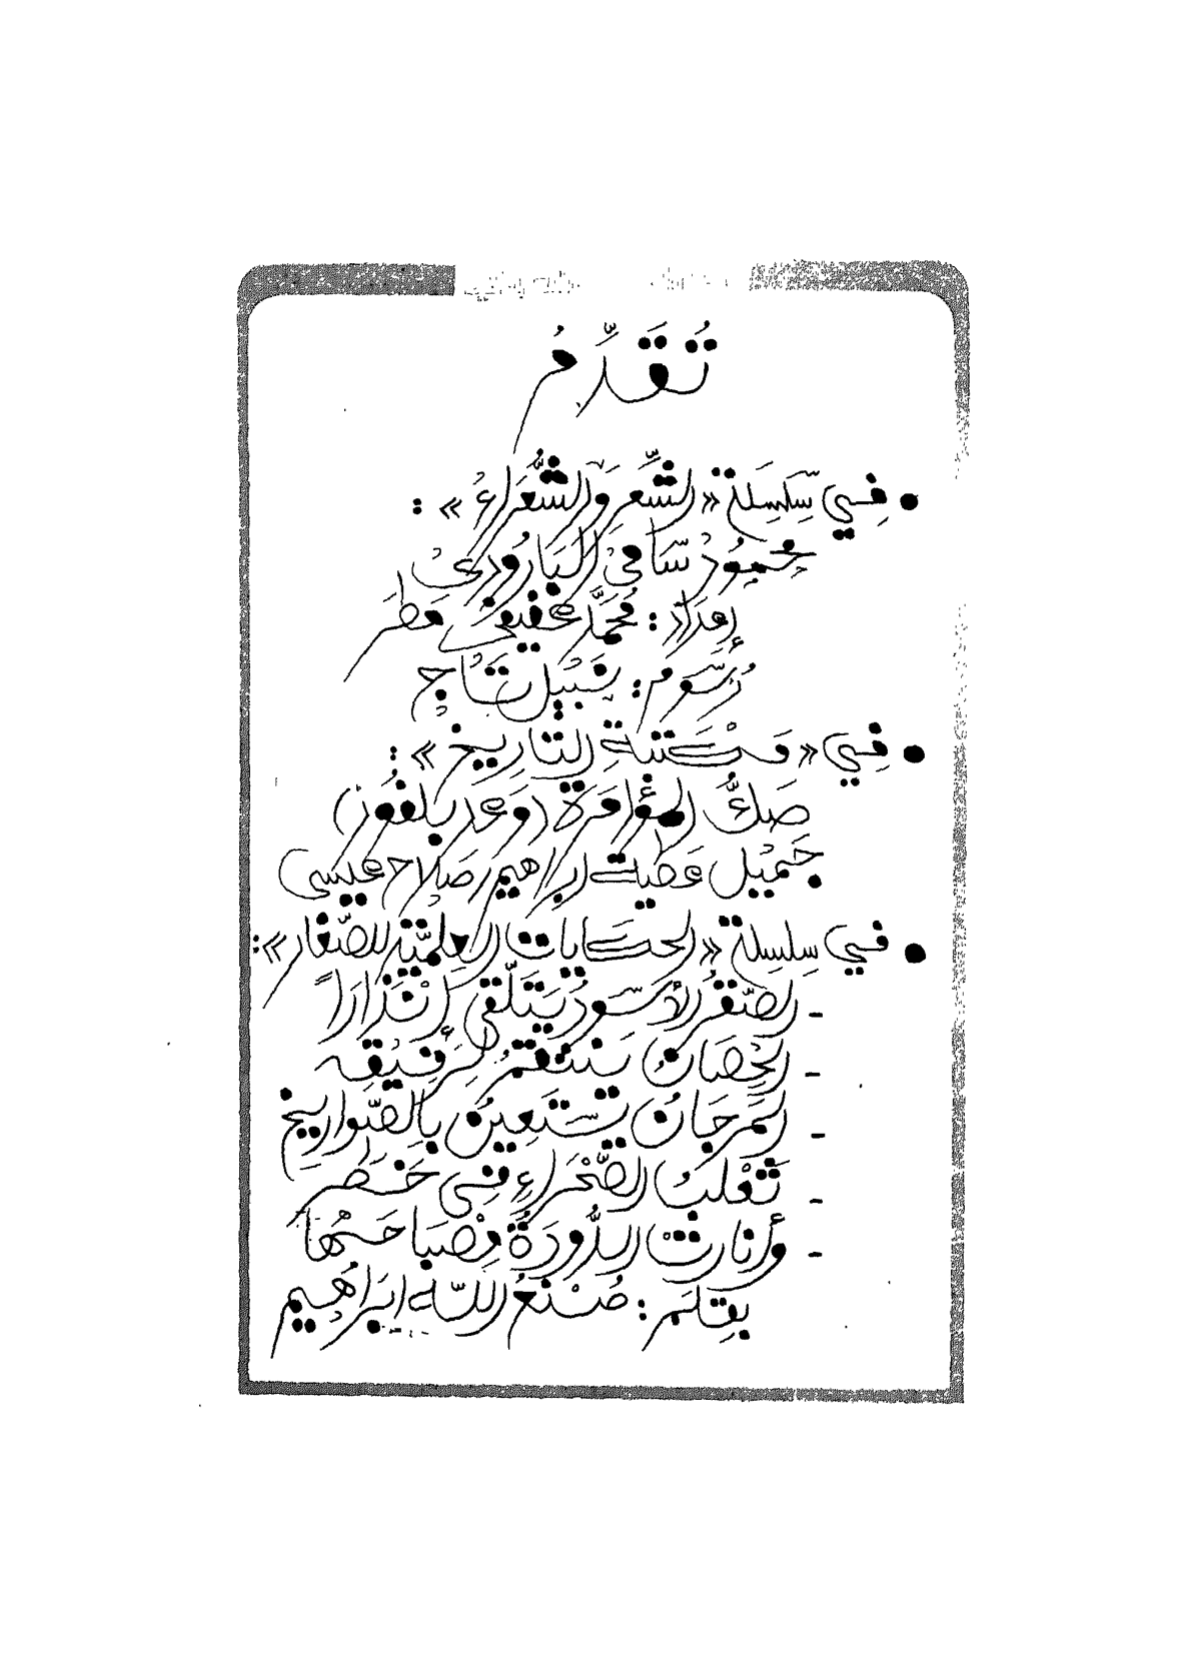 تُقَدِّمُ
• فِي سِّلسِلَة «الشِّعر والشُّعَراءُ» :
محمُود سَّامي البَارُودِيْ
إعدَاد : مُحمَّد عفيفي مطر
رُسّوم : نَبيْل تَاْج
• فِي «مَكتبة التاريخ» :
صَكُّ المؤامَرة (وَعد بلفُور)
جَميْل عَطيّة إبراهيم / صَلاح عيسى
• في سِلسِلة «الحكايات العِلميَّة للصِّغار» :
- الصَّقرُ الأسوَدُ يَتَلَّقى إنْذَارَاً
- الحِصَانُ يَنتَقمُ لِرَفيْقِه
- المَرجَانُ يَستَعِينُ بالصَّواريخ
- ثَعْلَبُ الصَّحْرَاءِ فِي خَطَر
- وأنارَتْ الدُّودَةُ مِصْبَاحَهْا
بقلَم : صُنْعُ اللّه ابَراهْيم